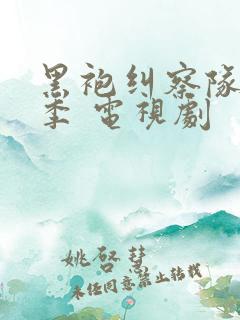 黑袍纠察队
季 電視劇
姚啓彗
未经同意禁止转载